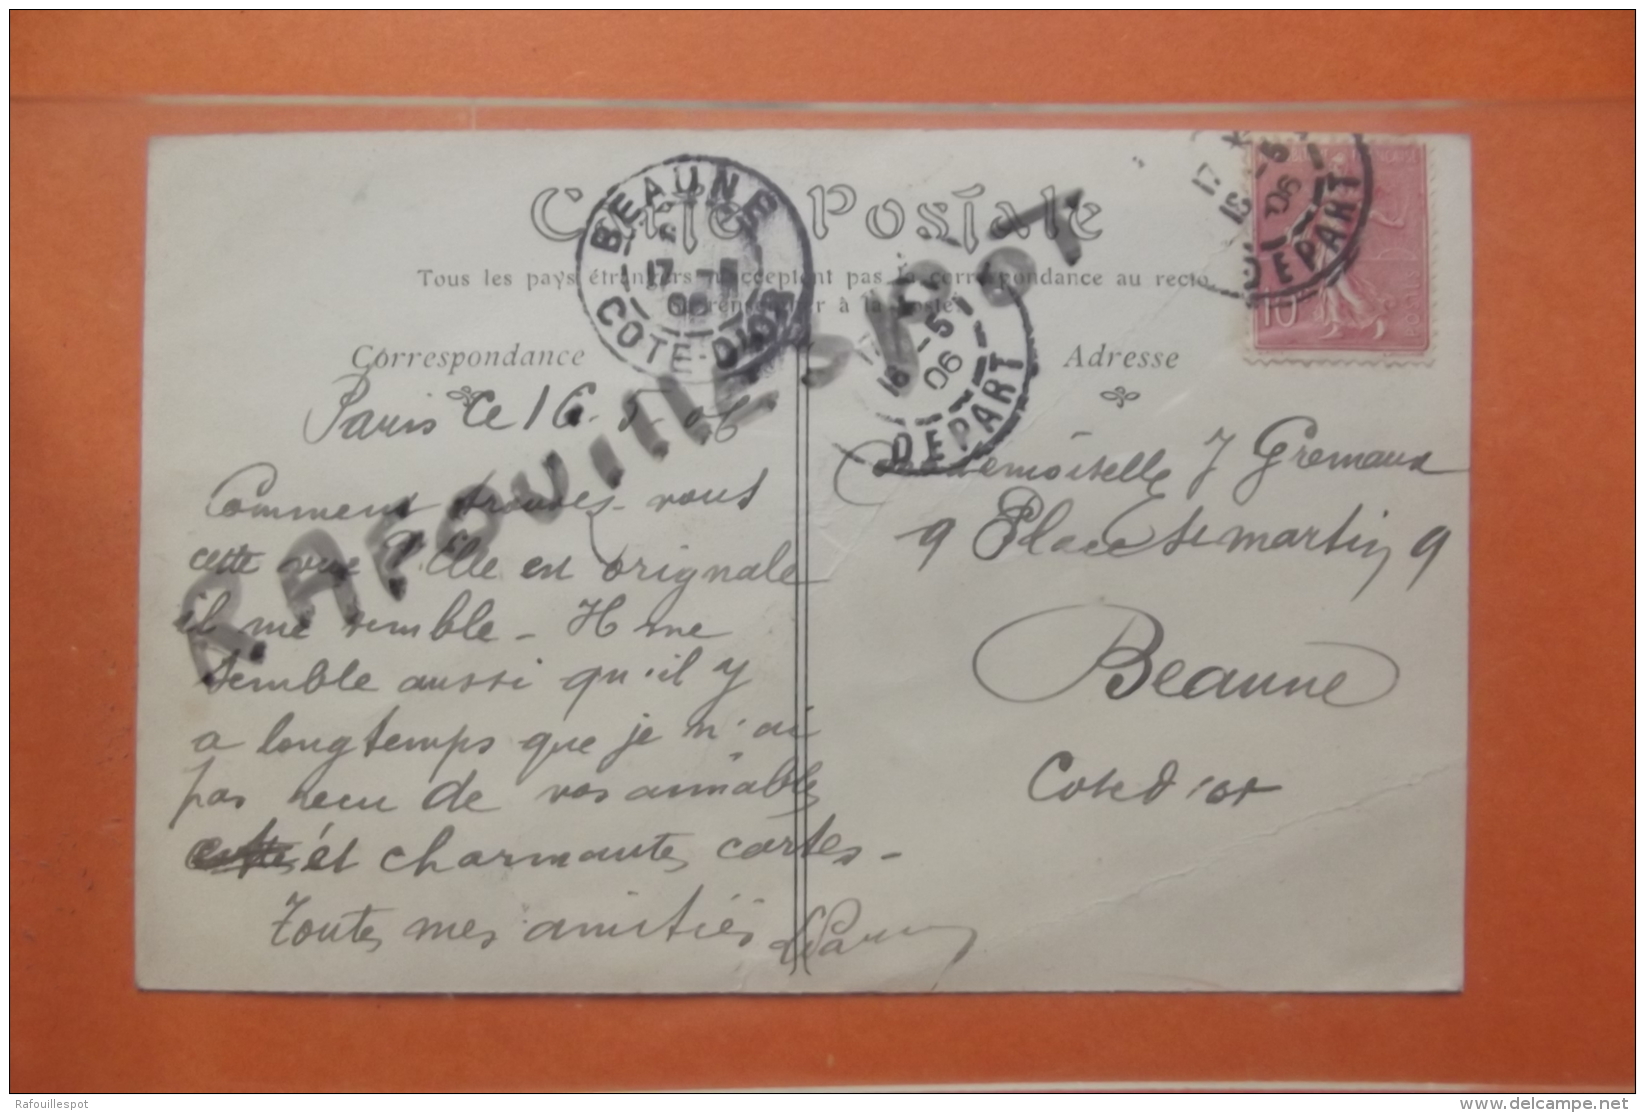 Carte Postale
Tous les pays étrangers n'acceptent pas la correspondance au recto
se renseigner à la Poste
Correspondance
Adresse
BEAUNE
COTE-D'OR
16 -5
06
DEPART
17
16 -5
06
DEPART
10
RAFOUILLESPOT
Paris ce 16.5.06
Comment trouvez-vous
cette vue? Elle est orignale
il me semble - Il me
semble aussi qu'il y
a longtemps que je n'ai
pas recu de vos aimables
et charmantes cartes -
Toutes mes amitiés
Mademoiselle J Gremaux
9 Place St martin 9
Beaune
Cote d'or
Rafouillespot
delcampe.net